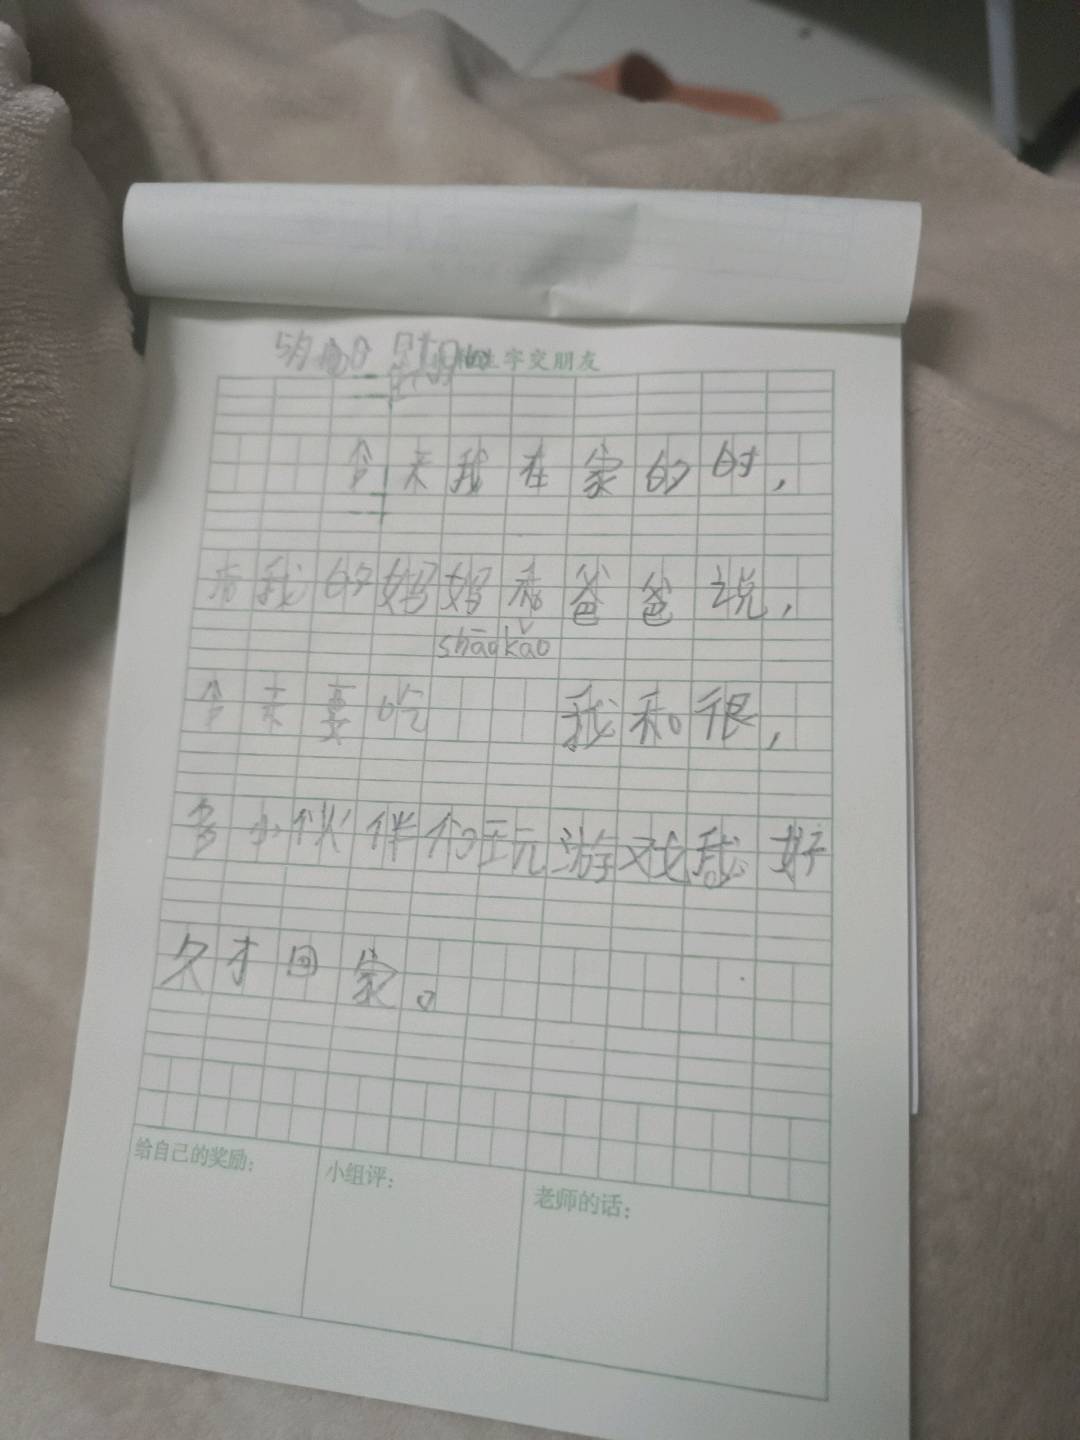 5月 日 星期 生字交朋友
今天我在家的时,
和我的妈妈和爸爸说,
shāokǎo
今天要吃 我和很,
多小伙伴们玩游戏我好
久才回家。
给自己的奖励: 小组评: 老师的话: